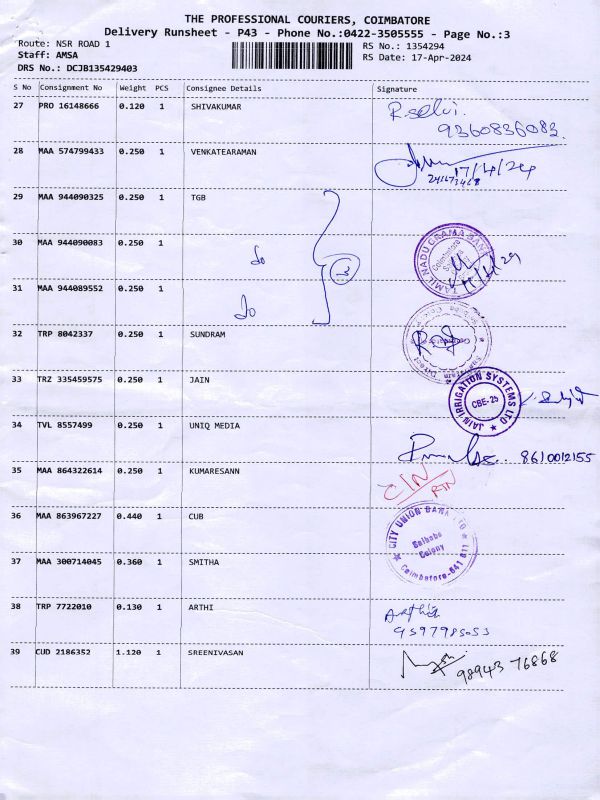 THE PROFESSIONAL COURIERS, COIMBATORE
Delivery Runsheet - P43 - Phone No.:0422-3505555 - Page No.:3
Route: NSR ROAD 1 RS No.: 1354294
Staff: AMSA RS Date: 17-Apr-2024
DRS No.: DCJB135429403
S No Consignment No Weight PCS Consignee Details Signature
27 PRO 16148666 0.120 1 SHIVAKUMAR R.selvi.
9360836083.
28 MAA 574799433 0.250 1 VENKATEARAMAN 17/4/24
29 MAA 944090325 0.250 1 TGB
30 MAA 944090083 0.250 1 do 3
TAMILNADU GRAMA BANK
Coimbatore
31 MAA 944089552 0.250 1 do
32 TRP 8042337 0.250 1 SUNDRAM
33 TRZ 335459575 0.250 1 JAIN
JAIN IRRIGATION SYSTEMS LTD
CBE-25
34 TVL 8557499 0.250 1 UNIQ MEDIA
8610012155
35 MAA 864322614 0.250 1 KUMARESANN C/N
RTN
36 MAA 863967227 0.440 1 CUB
CITY UNION BANK LTD
Saibaba
Colony
Coimbatore-641 011
37 MAA 300714045 0.360 1 SMITHA
38 TRP 7722010 0.130 1 ARTHI Arthi
9597985053
39 CUD 2186352 1.120 1 SREENIVASAN
98943 76868